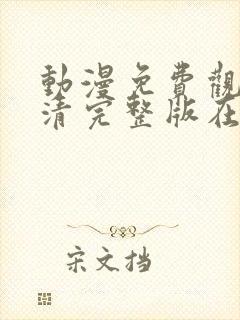 動漫免費觀
清完整版在
宋文挡